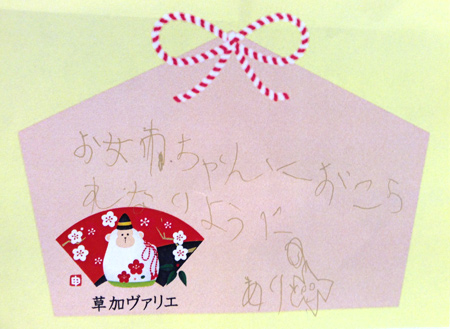 お姉ちゃんにおこら
れないように
あり
申
草加ヴァリエ